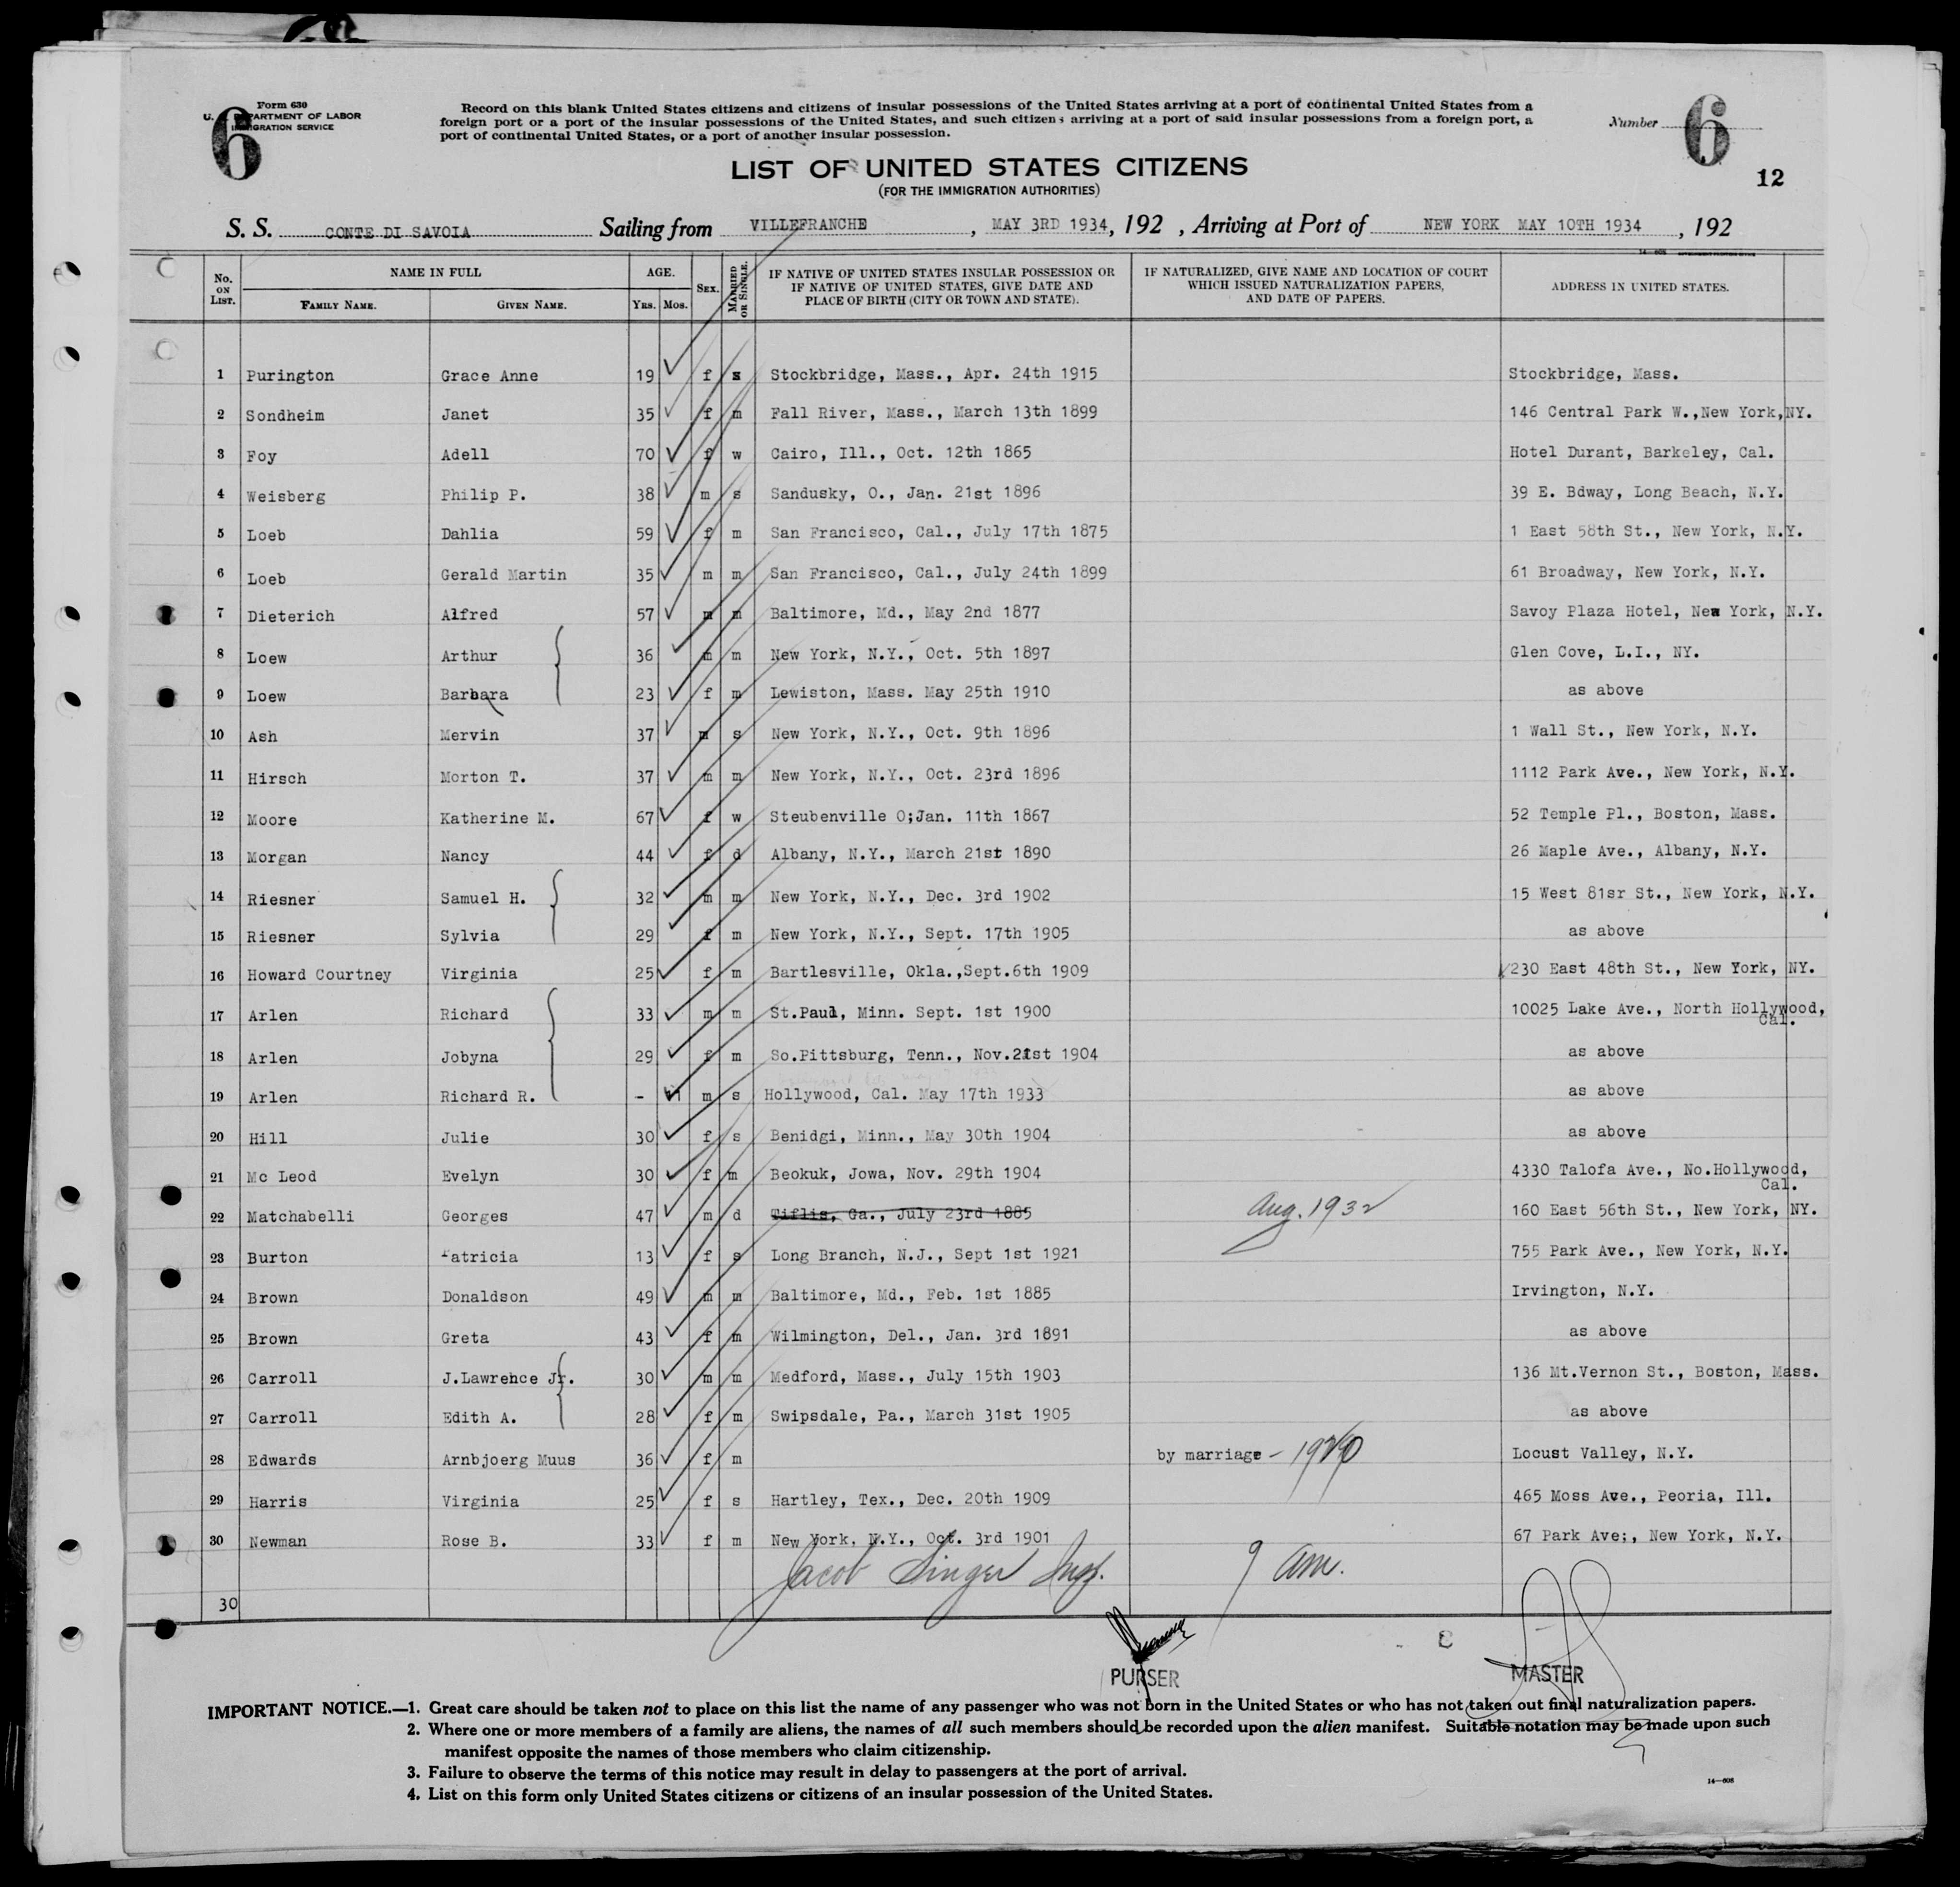 Form 630
U. DEPARTMENT OF LABOR
IMMIGRATION SERVICE
6
Record on this blank United States citizens and citizens of insular possessions of the United States arriving at a port of continental United States from a
foreign port or a port of the insular possessions of the United States, and such citizens arriving at a port of said insular possessions from a foreign port, a
port of continental United States, or a port of another insular possession.
Number 6
12
LIST OF UNITED STATES CITIZENS
(FOR THE IMMIGRATION AUTHORITIES)
S. S. CONTE DI SAVOIA Sailing from VILLEFRANCHE, MAY 3RD 1934, 192 , Arriving at Port of NEW YORK MAY 10TH 1934 , 192
No. ON LIST. NAME IN FULL FAMILY NAME. GIVEN NAME. AGE. YRS. MOS. SEX. MARRIED OR SINGLE. IF NATIVE OF UNITED STATES INSULAR POSSESSION OR IF NATIVE OF UNITED STATES, GIVE DATE AND PLACE OF BIRTH (CITY OR TOWN AND STATE). IF NATURALIZED, GIVE NAME AND LOCATION OF COURT WHICH ISSUED NATURALIZATION PAPERS, AND DATE OF PAPERS. ADDRESS IN UNITED STATES.
1 Purington Grace Anne 19 f s Stockbridge, Mass., Apr. 24th 1915 Stockbridge, Mass.
2 Sondheim Janet 35 f m Fall River, Mass., March 13th 1899 146 Central Park W.,New York,NY.
3 Foy Adell 70 f w Cairo, Ill., Oct. 12th 1865 Hotel Durant, Barkeley, Cal.
4 Weisberg Philip P. 38 m s Sandusky, O., Jan. 21st 1896 39 E. Bdway, Long Beach, N.Y.
5 Loeb Dahlia 59 f m San Francisco, Cal., July 17th 1875 1 East 58th St., New York, N.Y.
6 Loeb Gerald Martin 35 m m San Francisco, Cal., July 24th 1899 61 Broadway, New York, N.Y.
7 Dieterich Alfred 57 m m Baltimore, Md., May 2nd 1877 Savoy Plaza Hotel, New York, N.Y.
8 Loew Arthur 36 m m New York, N.Y., Oct. 5th 1897 Glen Cove, L.I., NY.
9 Loew Barbara 23 f m Lewiston, Mass. May 25th 1910 as above
10 Ash Mervin 37 m s New York, N.Y., Oct. 9th 1896 1 Wall St., New York, N.Y.
11 Hirsch Morton T. 37 m m New York, N.Y., Oct. 23rd 1896 1112 Park Ave., New York, N.Y.
12 Moore Katherine M. 67 f w Steubenville O;Jan. 11th 1867 52 Temple Pl., Boston, Mass.
13 Morgan Nancy 44 f d Albany, N.Y., March 21st 1890 26 Maple Ave., Albany, N.Y.
14 Riesner Samuel H. 32 m m New York, N.Y., Dec. 3rd 1902 15 West 81sr St., New York, N.Y.
15 Riesner Sylvia 29 f m New York, N.Y., Sept. 17th 1905 as above
16 Howard Courtney Virginia 25 f m Bartlesville, Okla.,Sept.6th 1909 230 East 48th St., New York, NY.
17 Arlen Richard 33 m m St.Paul, Minn. Sept. 1st 1900 10025 Lake Ave., North Hollywood, Cal.
18 Arlen Jobyna 29 f m So.Pittsburg, Tenn., Nov.21st 1904 as above
19 Arlen Richard R. - 11 m s Hollywood, Cal. May 17th 1933 as above
20 Hill Julie 30 f s Benidgi, Minn., May 30th 1904 as above
21 Mc Leod Evelyn 30 f m Beokuk, Jowa, Nov. 29th 1904 4330 Talofa Ave., No.Hollywood, Cal.
22 Matchabelli Georges 47 m d Tiflis, Ga., July 23rd 1885 Aug. 1932 160 East 56th St., New York, NY.
23 Burton Patricia 13 f s Long Branch, N.J., Sept 1st 1921 755 Park Ave., New York, N.Y.
24 Brown Donaldson 49 m m Baltimore, Md., Feb. 1st 1885 Irvington, N.Y.
25 Brown Greta 43 f m Wilmington, Del., Jan. 3rd 1891 as above
26 Carroll J.Lawrence Jr. 30 m m Medford, Mass., July 15th 1903 136 Mt.Vernon St., Boston, Mass.
27 Carroll Edith A. 28 f m Swipsdale, Pa., March 31st 1905 as above
28 Edwards Arnbjoerg Muus 36 f m by marriage - Locust Valley, N.Y.
29 Harris Virginia 25 f s Hartley, Tex., Dec. 20th 1909 465 Moss Ave., Peoria, Ill.
30 Newman Rose B. 33 f m New York, N.Y., Oct. 3rd 1901 67 Park Ave;, New York, N.Y.
Jacob Singer Insp. 9 am.
30
PURSER MASTER
IMPORTANT NOTICE.—1. Great care should be taken not to place on this list the name of any passenger who was not born in the United States or who has not taken out final naturalization papers.
2. Where one or more members of a family are aliens, the names of all such members should be recorded upon the alien manifest. Suitable notation may be made upon such
manifest opposite the names of those members who claim citizenship.
3. Failure to observe the terms of this notice may result in delay to passengers at the port of arrival.
4. List on this form only United States citizens or citizens of an insular possession of the United States.
14—608